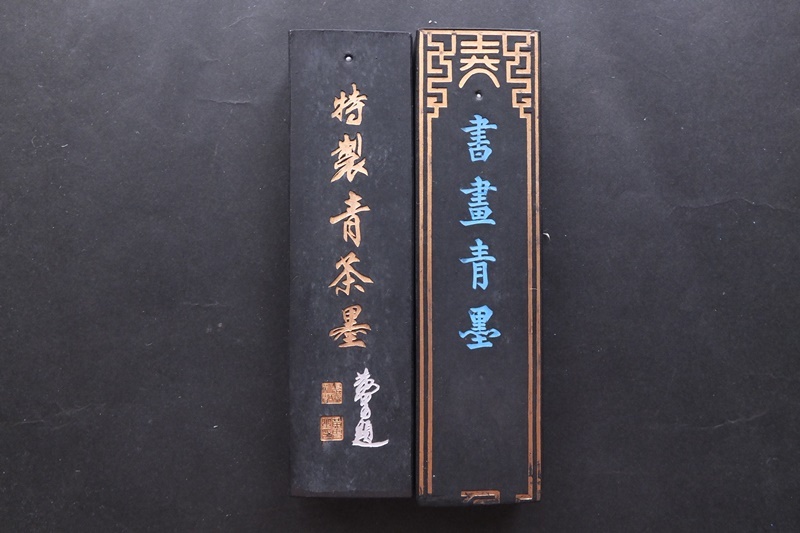 特製青茶墨
書畫青墨